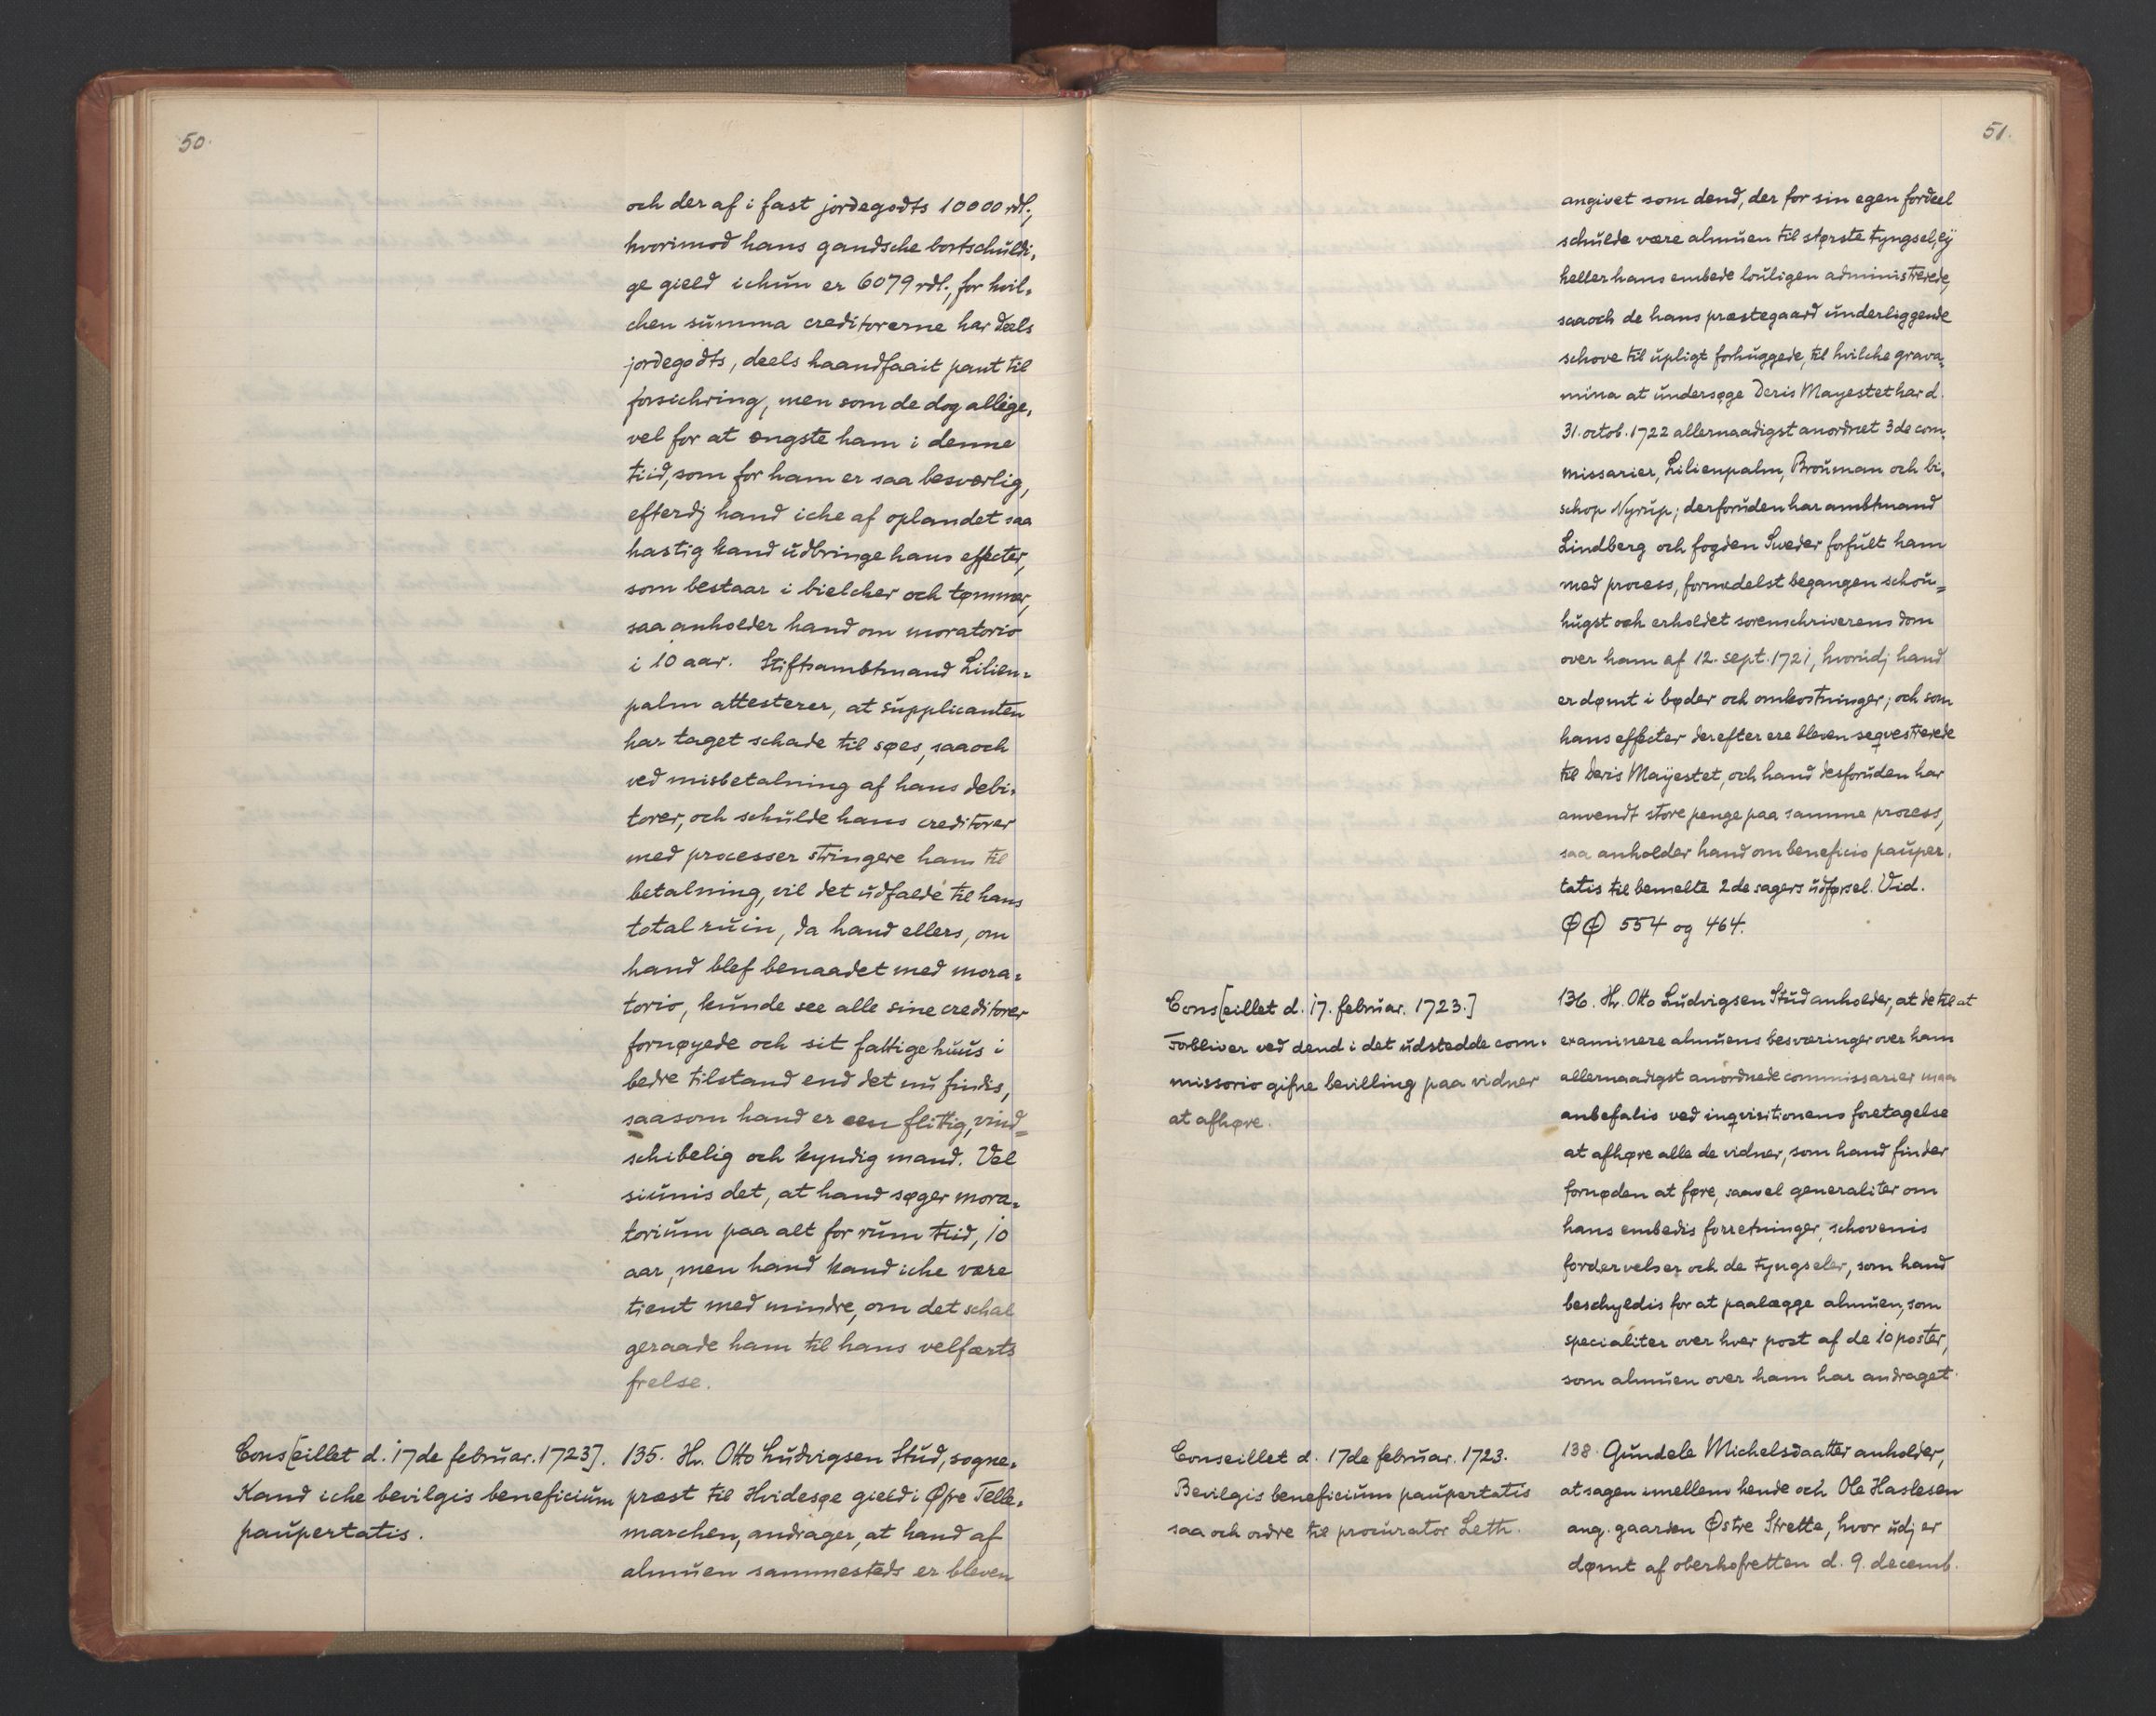 50.
och der af i fast jordegodts 10000 rdl.,
hvorimod hans gandsche bortschüldi,
ge gield ichün er 6079 rdl., for hvil,
chen sümma creditorerne har deels
jordegodts, deels haandfaait pant til
forsichring, men som de dog allige,
vel for at ængste ham i denne
tiid, som for ham er saa besværlig,
efterdj hand iche af oplandet saa
hastig kand üdbringe hans effecter,
som bestaar i bielcher och tømmer,
saa anholder hand om moratorio
i 10 aar. Stiftsambtmand Lilien=
palm attesterer, at süpplicanten
har taget schade til søes, saaoch
ved misbetalning af hans debi,
torer, och schülde hans creditorer
med processer stringere ham til
betalning, vil det üdfalde til hans
total rüin, da hand ellers, om
hand blef benaadet med mora=
torio, künde see alle sine creditorer
fornøyede och sit fattige hüüs i
bedre tilstand end det nü findis,
saasom hand er een flittig, vind=
schibelig och kyndig mand. Vel
siünis det, at hand søger mora=
toriüm paa alt for rüm tiid, 10
aar, men hand kand iche være
tient med mindre, om det schal
geraade ham til hans velfærts
frelse.
Cons[eillet d. 17de febrüar. 1723].
Kand iche bevilgis beneficiüm
paüpertatis.
135. Hr. Otto Lüdvigsen Stüd, sogne,
præst til Hvidesøe gield i Øfre Telle,
marchen, andrager, at hand af
almüen sammesteds er bleven
51.
angivet som dend, der for sin egen fordeel
schülde være almüen til største tyngsel, ey
heller hans embede loüligen administrerede,
saaoch de hans præstegaard ünderliggende
schove til üpligt forhüggede, til hvilche grava,
mina at ündersøge Deris Mayestet har d.
31. octob. 1722 allernaadigst anordnet 3de com,
missarier, Lilienpalm, Broüman och bi,
schop Nyrüp; derforüden har ambtmand
Lindberg och fogden Sweder forfült ham
med process, formedelst begangen schoü=
hügst och erholdet sorenschriverens dom
over ham af 12. sept. 1721, hvorüdj hand
er dømt i bøder och omkostninger; och som
hans effecter derefter ere bleven seqvestrerede
til Deris Mayestet, och hand desforüden har
anvendt store penge paa samme process,
saa anholder hand om beneficio paüper,
tatis til bemelte 2de sagers üdførsel. Vid.
ΦΦ 554 og 464.
Cons[eillet d. 17. febrüar. 1723.]
Forbliver ved dend i det üdstedde com,
missorio gifne bevilling paa vidner
at afhøre.
136. Hr. Otto Lüdvigsen Stüd anholder, at de til at
examinere almüens besværinger over ham
allernaadigst anordnede commissarier maa
anbefalis ved inqvisitionens foretagelse
at afhøre alle de vidner, som hand finder
fornøden at føre, saavel generaliter om
hans embedis forretninger, schovenis
fordervelser och de tyngseler, som hand
beschyldis for at paalægge almüen, som
specialiter over hver post af de 10 poster,
som almüen over ham har andraget.
Conseillet d. 17de febrüar. 1723.
Bevilgis beneficiüm paüpertatis
saa och ordre til procürator Leth.
138. Gündele Michelsdaatter anholder,
at sagen imellem hende och Ole Haslesen
ang. gaarden Østre Strette, hvor üdj er
dømt af oberhofretten d. 9. decemb.